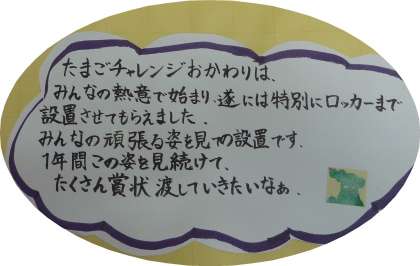 たまごチャレンジおかわりは、
みんなの熱意で始まり、遂には特別にロッカーまで
設置させてもらえました。
みんなの頑張る姿を見ての設置です。
1年間この姿を見続けて、
たくさん賞状渡していきたいなぁ。